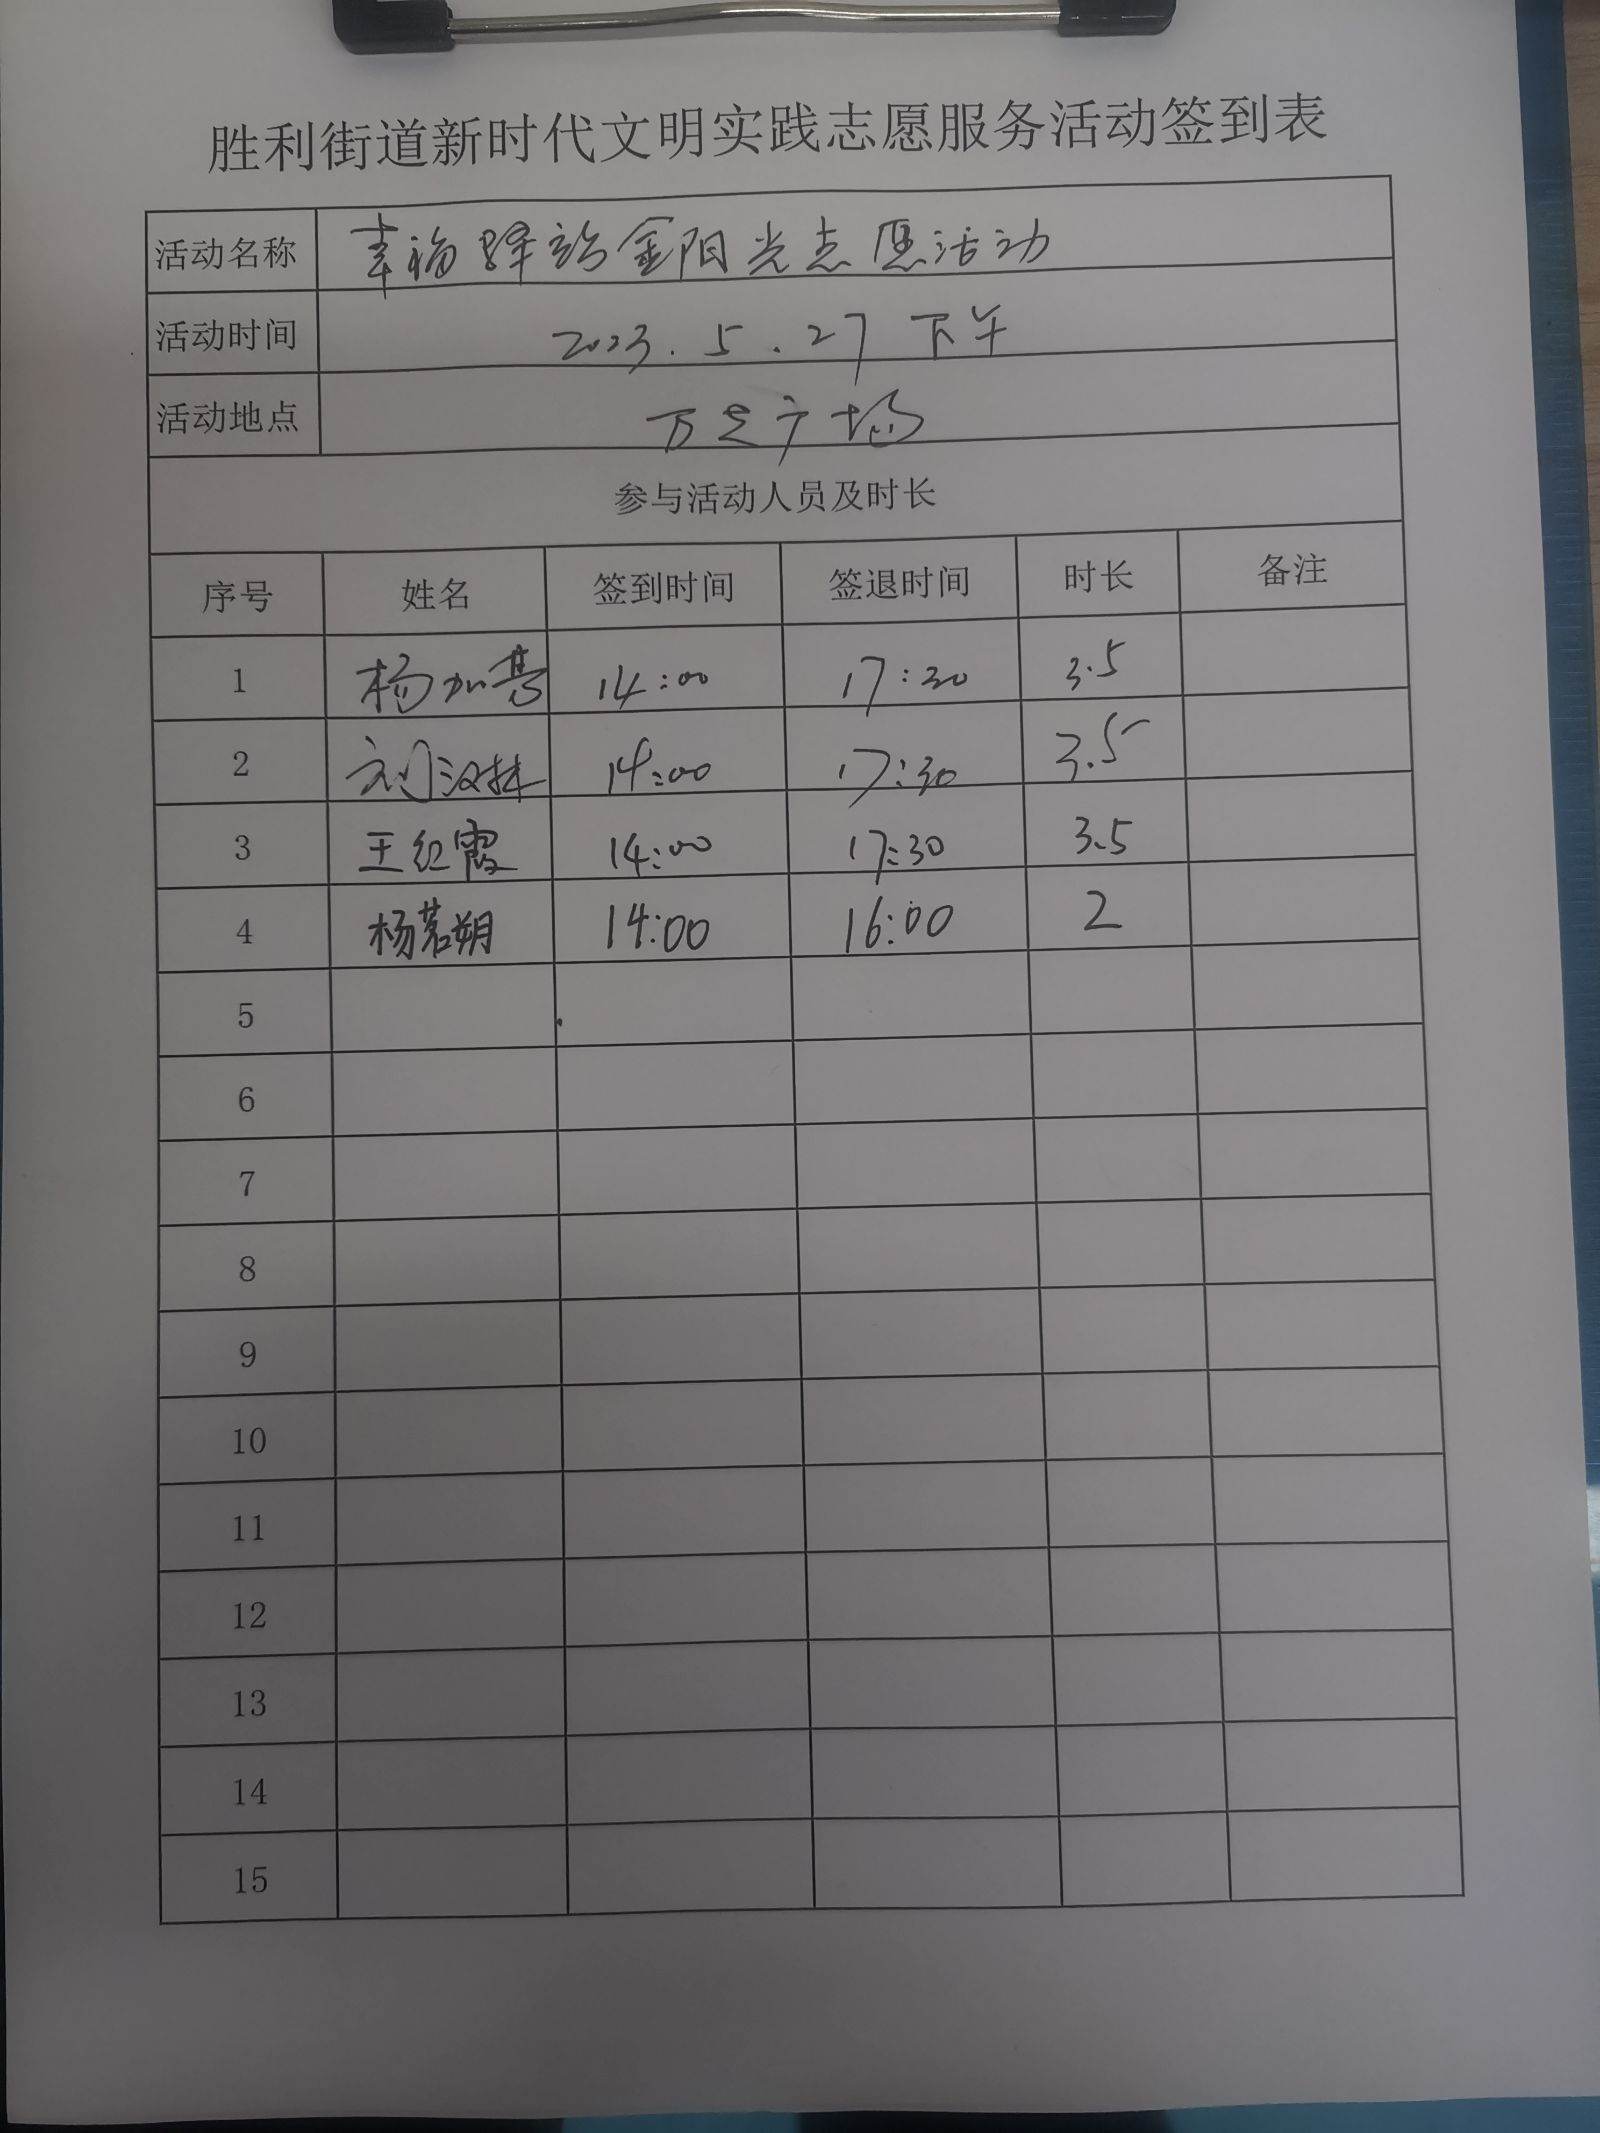 胜利街道新时代文明实践志愿服务活动签到表
活动名称 幸福驿站金阳光志愿活动
活动时间 2023.5.27 下午
活动地点 万达广场
参与活动人员及时长
序号 姓名 签到时间 签退时间 时长 备注
1 杨加 14:00 17:30 3.5
2 刘汉林 14:00 17:30 3.5
3 王红霞 14:00 17:30 3.5
4 杨茗朔 14:00 16:00 2
5
6
7
8
9
10
11
12
13
14
15